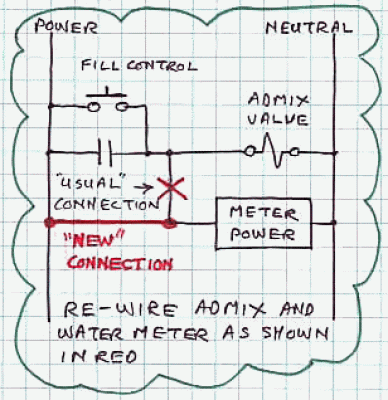 POWER NEUTRAL
FILL CONTROL
ADMIX
VALVE
"USUAL"
CONNECTION
METER
POWER
"NEW"
CONNECTION
RE-WIRE ADMIX AND
WATER METER AS SHOWN
IN RED